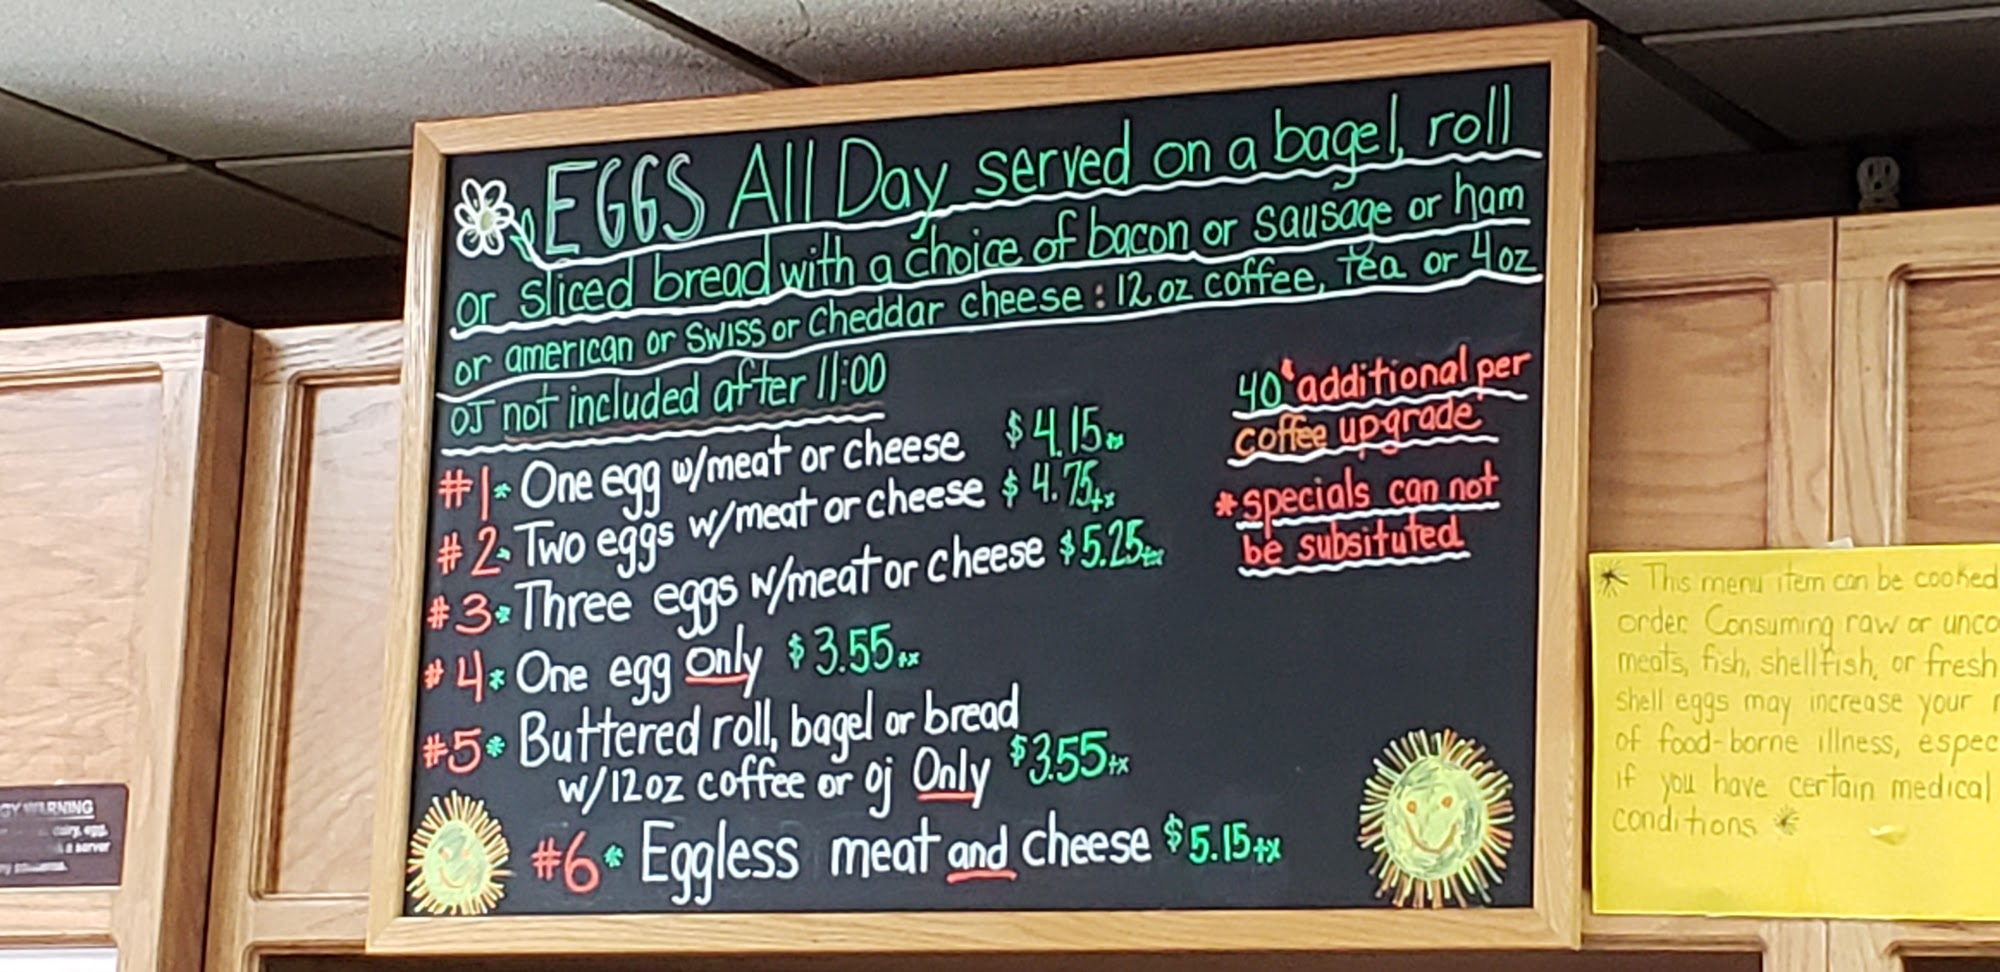 EGGS All Day served on a bagel, roll
or sliced bread with a choice of bacon or sausage or ham
or american or swiss or cheddar cheese : 12 oz coffee, tea or 4 oz
OJ not included after 11:00
#1* One egg w/meat or cheese $4.15 tx
#2* Two eggs w/meat or cheese $4.75 tx
#3* Three eggs w/meat or cheese $5.25 tx
#4* One egg only $3.55 tx
#5* Buttered roll, bagel or bread
w/12oz coffee or oj Only $3.55 tx
#6* Eggless meat and cheese $5.15 tx
40¢ additional per
coffee upgrade
*specials can not
be subsituted
* This menu item can be cooked
order. Consuming raw or unco
meats, fish, shellfish, or fresh
shell eggs may increase your r
of food-borne illness, espec
if you have certain medical
conditions *
GY WARNING
dairy, egg,
a server